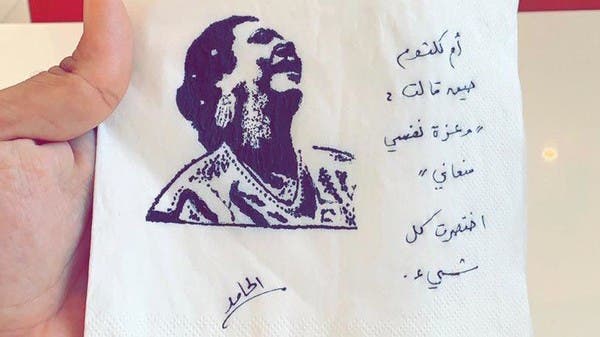 أم كلثوم
حين قالت :
"وعزة نفسي
منعاني"
اختصرت كل
شيء .
الحامد